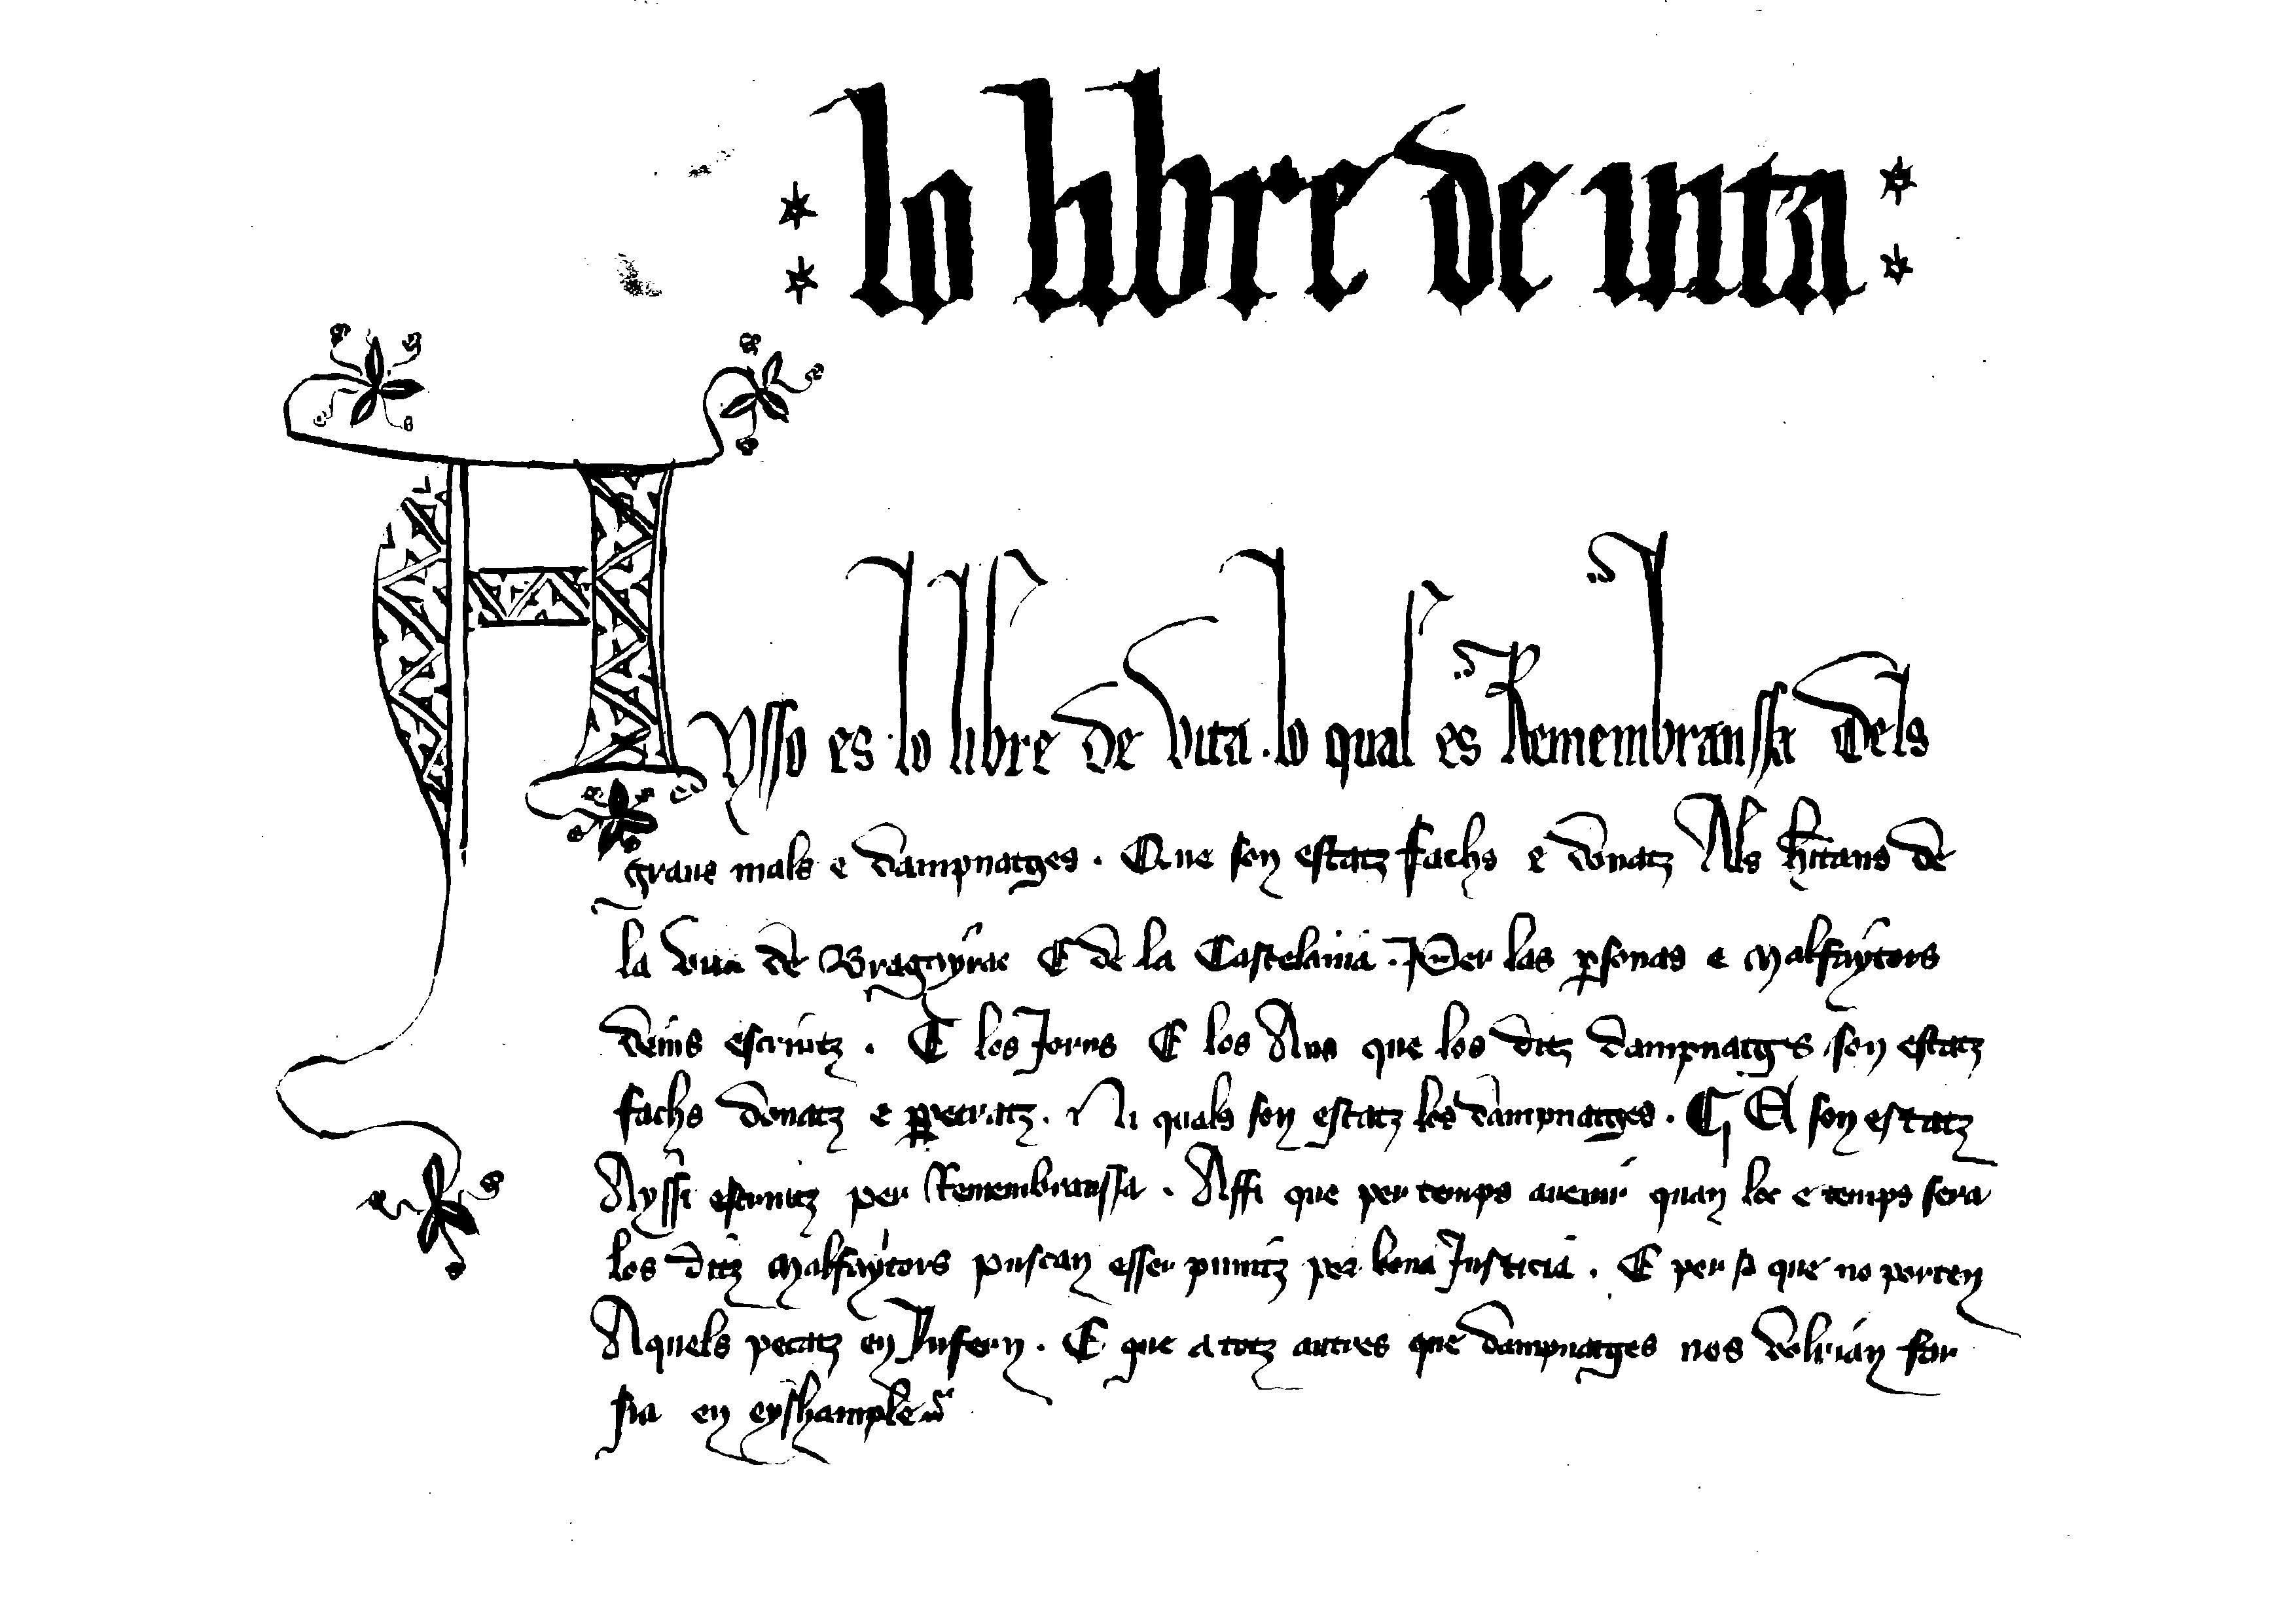 lo libre de vita
Aysso es lo libre de vita . lo qual es Remembranssa dels
greus mals e dampnatges . Que son estatz fachs e donatz Als hitans de
la vila de Bragayrac E de la Castelania . Per las psonas e Malfaytors
deins escriutz . E los Jorns E los Ans que los ditz dampnatges son estatz
fachs donatz e ppetratz . Ni quals son estatz los dampnatges . El son estatz
Ayssi escriutz per Remembranssa . Affi que per temps avenir quan loc e temps sera
los ditz Malfaytors puscan esser punitz per bona Justicia . E per so que no porten
Aquels pecatz en Infern . E que a totz autres que dampnatges nos volrian far
sia en eyshample